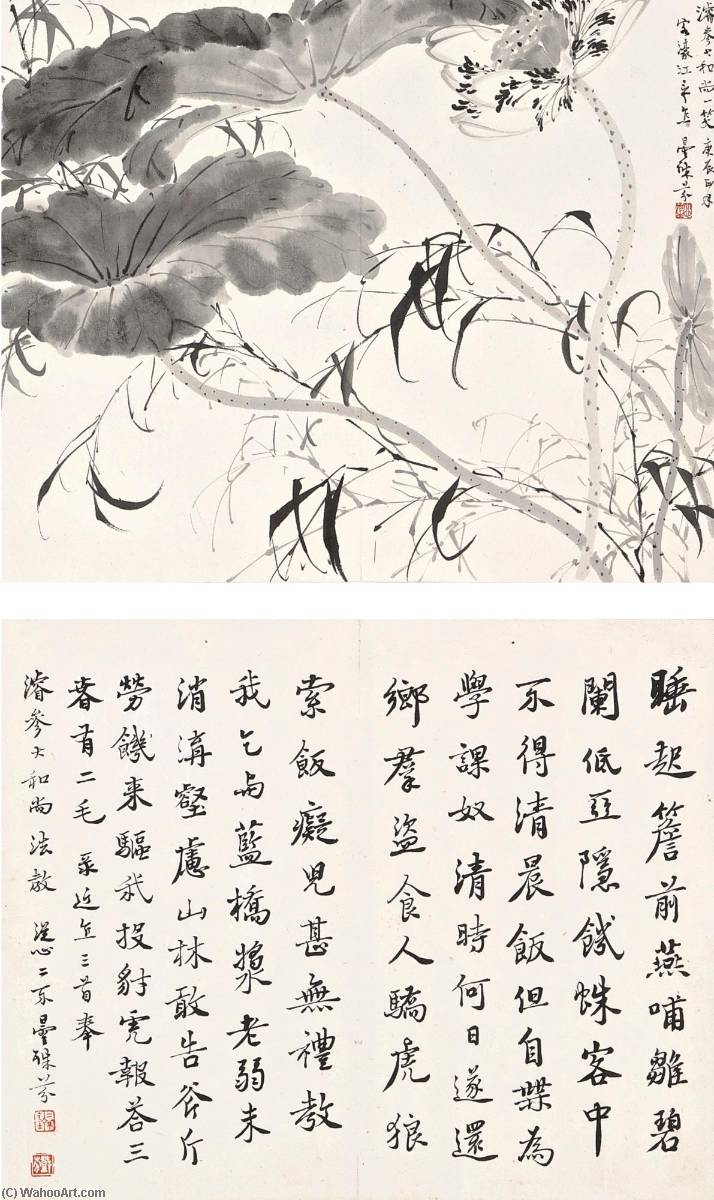 濬參大和尚一笑 庚辰
客濠江 曇殊芬
睡起簷前燕哺雛碧
闌低亞隱饑蛛客中
不得清晨飯但自為
學課奴清時何日遂還
鄉羣盜食人驕虎狼
索飯癡兒甚無禮教
我乞与藍橋漿老弱未
消溝壑慮山林敢告斧斤
勞饑來驅我投豺虎報荅三
春有二毛 近三首奉
濬參大和尚法教 從心 曇殊芬
(C) WahooArt.com